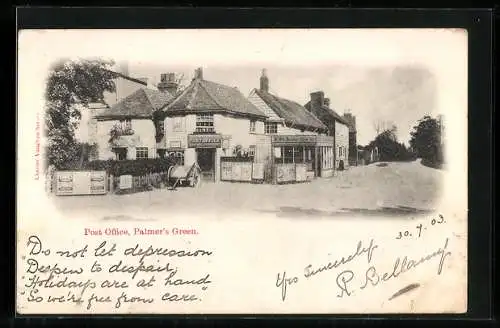 POST OFFICE
Post Office, Palmer's Green.
30.7.03
Do not let depression
Deepen to despair,
"Holidays are at hand"
"So we're free from care.
Yrs Sincerely
R. Bellamy.